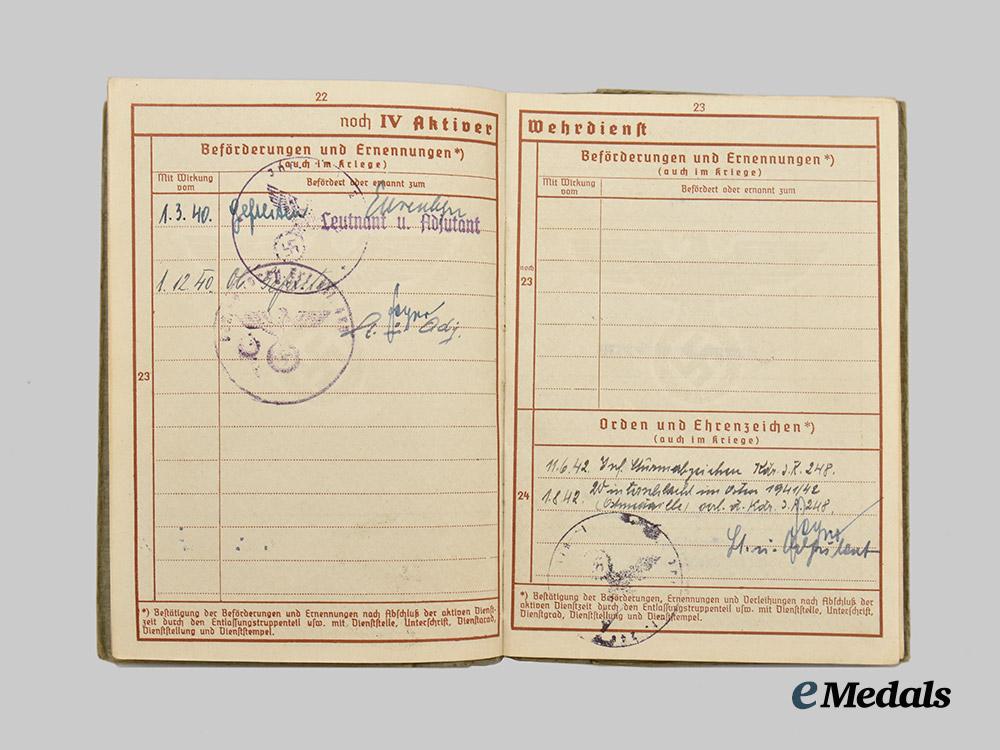 22
noch IV Aktiver
Beförderungen und Ernennungen*)
(auch im Kriege)
Mit Wirkung vom
Befördert oder ernannt zum
1.3.40. Gefreiten
Leutnant u. Adjutant
1.12.40.
Adj.
23
*) Bestätigung der Beförderungen und Ernennungen nach Abschluß der aktiven Dienst-
zeit durch den Entlassungstruppenteil usw. mit Dienststelle, Unterschrift, Dienstgrad,
Dienststellung und Dienststempel.
23
Wehrdienst
Beförderungen und Ernennungen*)
(auch im Kriege)
Mit Wirkung vom
Befördert oder ernannt zum
noch
23
Orden und Ehrenzeichen*)
(auch im Kriege)
11.6.42. Inf. Sturmabzeichen Kdr. J.R. 248.
24
1.8.42. Winterschlacht im Osten 1941/42
(Ostmedaille) verl. d. Kdr. J.R. 248.
Lt. u. Adjutant
*) Bestätigung der Beförderungen, Ernennungen und Verleihungen nach Abschluß der
aktiven Dienstzeit durch den Entlassungstruppenteil usw. mit Dienststelle, Unterschrift,
Dienstgrad, Dienststellung und Dienststempel.
eMedals